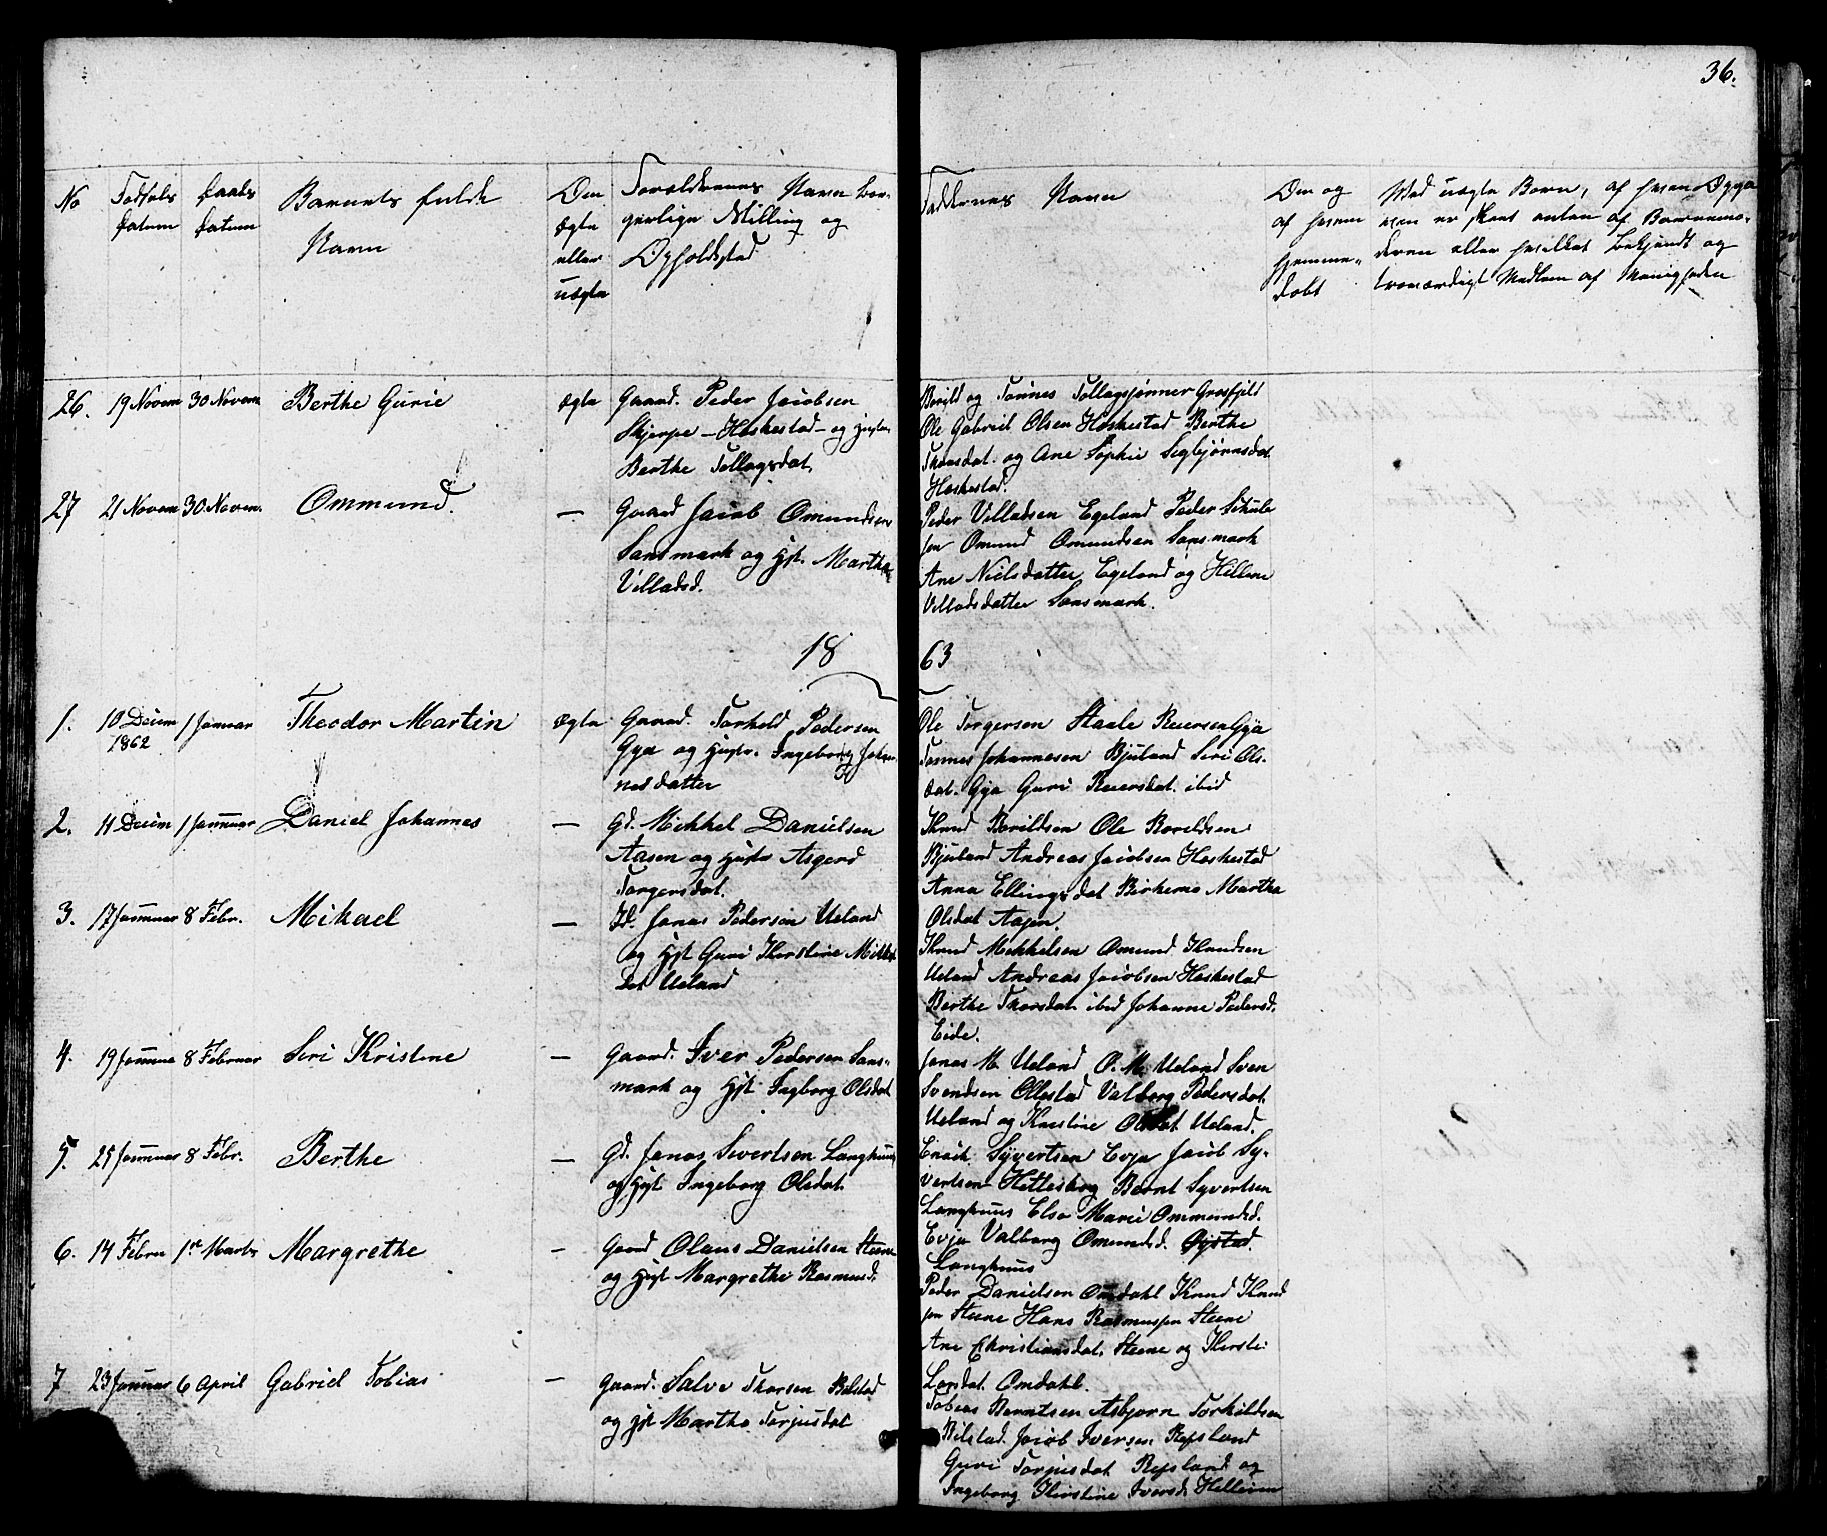 36.
No
Fødsels
datum
Daabs
datum
Barnets fulde
Navn
Om
ægte
eller
uægte
Forældrenes Navn bor-
gerlige Stilling og
Opholdsted
Faddernes Navn
Om og
af hvem
hjemme-
døbt
Med uægte Børn, af hvem Opga
ven er skeet enten af Barnemo-
deren eller hvilket bekjendt og
troværdigt Medlem af Menigheden
26. 19 Novem 30 Novem. Berthe Gurie ægte
Gaard. Peder Jacobsen
Skjerpe - Heskestad - og
Berthe Tollagsdat.
Borild og Tønnes Tollagsønner Grøsfjeld
Ole Gabriel Olsen Heskestad Berthe
Thorsdat. og Ane Sophie Segbjørnsdat
Heskestad.
27 21 Novem 30 Novem. Ommund. —
Gaard Jacob Omundsen
Sansmark og Hst. Marthe
Villadsd.
Peder Villadsen Egeland Peder Schule
sen Omund Omundsen Sansmark
Ane Nielsdatter Egeland og Hellene
Villadsdatter Sansmark.
18 63
1. 10 Decem 1 Januar Theodor Martin ægte
1862
Gaard. Torkeld Pedersen
Gya og Hustr. Ingeborg Johan
nesdatter
Ole Torgersen Staale Reiersen Gya
Tønnes Johannesen Bjuland Siri Ols-
dat. Gya Guri Reiersdat. ibid
2. 11 Decem 1 Januar Daniel Johannes —
Gd. Mikkel Danielsen
Aasen og Hustr Asgerd
Torgersdat.
Knud Borildsen Ole Boreldsen
Bjuland Andreas Jacobsen Heskestad
Anna Ellingsdat Birkemo Martha
Olsdat Aasen.
3. 17 Januar 8 Febr. Mikael —
Jonas Pedersen Ueland
og Hst Guri Kirstine Mikkel
dat Ueland
Knud Mikkelsen Omund Knudsen
Ueland Andreas Jacobsen Heskestad
Berthe Thorsdat. ibid Johanne Pedersd.
Eide.
4. 19 Januar 8 Februar Seri Kristine —
Gaard. Iver Pedersen Sans-
mark og Hst Ingborg Olsdat
Jonas M. Ueland O. M. Ueland Sven
Svendsen Ollestad Valborg Pedersdat.
Ueland og Kristine Olsdat Ueland.
5. 25 Januar 8 Febr. Berthe —
Gd. Jonas Sivertsen Langhuus
og Hst Ingeborg Olsdat
Enoch Syvertsen Evje Jacob Sy-
vertsen Hettesborg Bernt Syvertsen
Langhuus Else Marie Ommundsd.
Evje Valborg Omundsd. Øystad.
Langhuus
6. 14 Febru 1ste Marts Margrethe —
Gaard Olaus Danielsen Steene
og Hst Margrethe Rasmusd.
Peder Danielsen Omdahl Knud Knud
sen Steene Hans Rasmussen Steene
Ane Christiansdat. Steene og Kirsti
Larsdat. Omdahl.
7 23 Januar 6 April Gabriel Tobias —
Gaard. Salve Thorsen Bilstad
og Hst Marthe Torjusdat
Tobias Berntsen Asbjørn Torkildsen
Bilstad. Jacob Iversen Refsland
Guri Torjusdat Refsland og
Ingeborg Kirstine Iversd. Helleren